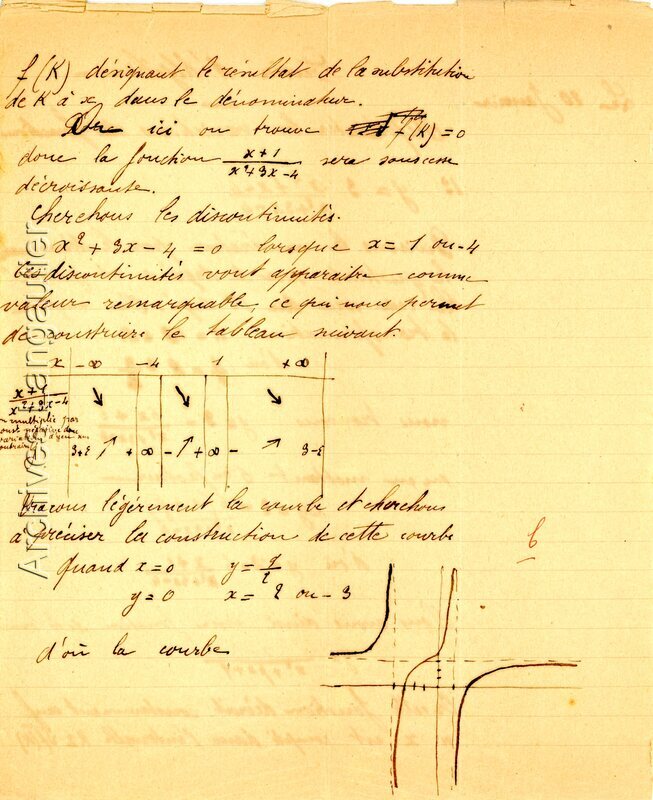 f(K) désignant le résultat de la substitution
de K à x dans le dénominateur.
ici on trouve f(K) = 0
donc la fonction x+1 / x²+3x-4 sera sans cesse
décroissante.
Cherchons les discontinuités.
x² + 3x - 4 = 0 lorsque x = 1 ou -4
Les discontinuités vont apparaitre comme
valeur remarquable ce qui nous permet
de construire le tableau suivant.
x -∞ -4 1 +∞
x+1 / x²+3x-4 ↘ ↘ ↘
multiplié par
3+ε ↗ +∞ - ↗ +∞ - ↗ 3-ε
Traçons légèrement la courbe et cherchons
à préciser la construction de cette courbe
quand x=0 y=9/2
y=0 x= 2 ou -3
d'où la courbe
6
Archives Langautier